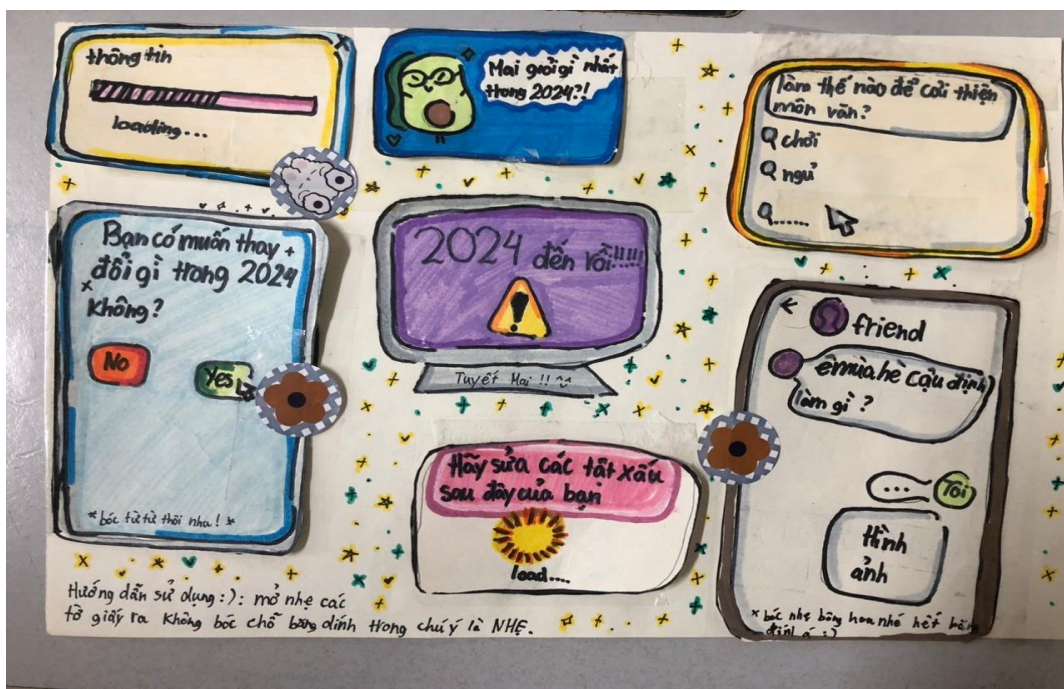 thông tin
loading...
Mai giỏi gì nhất
trong 2024?!
làm thế nào để cải thiện
môn văn?
chơi
ngủ
......
Bạn có muốn thay
đổi gì trong 2024
không?
No
Yes
*bóc từ từ thôi nha! *
2024 đến rồi!!!!!
!
Tuyết Mai !!
Hãy sửa các tật xấu
sau đây của bạn
load....
friend
ê mùa hè cậu định
làm gì?
...
Tôi
Hình
ảnh
*bóc nhẹ bông hoa nhé hết băng
dính á :)
Hướng dẫn sử dụng :): mở nhẹ các
tờ giấy ra không bóc chỗ băng dính trong chú ý là NHẸ.